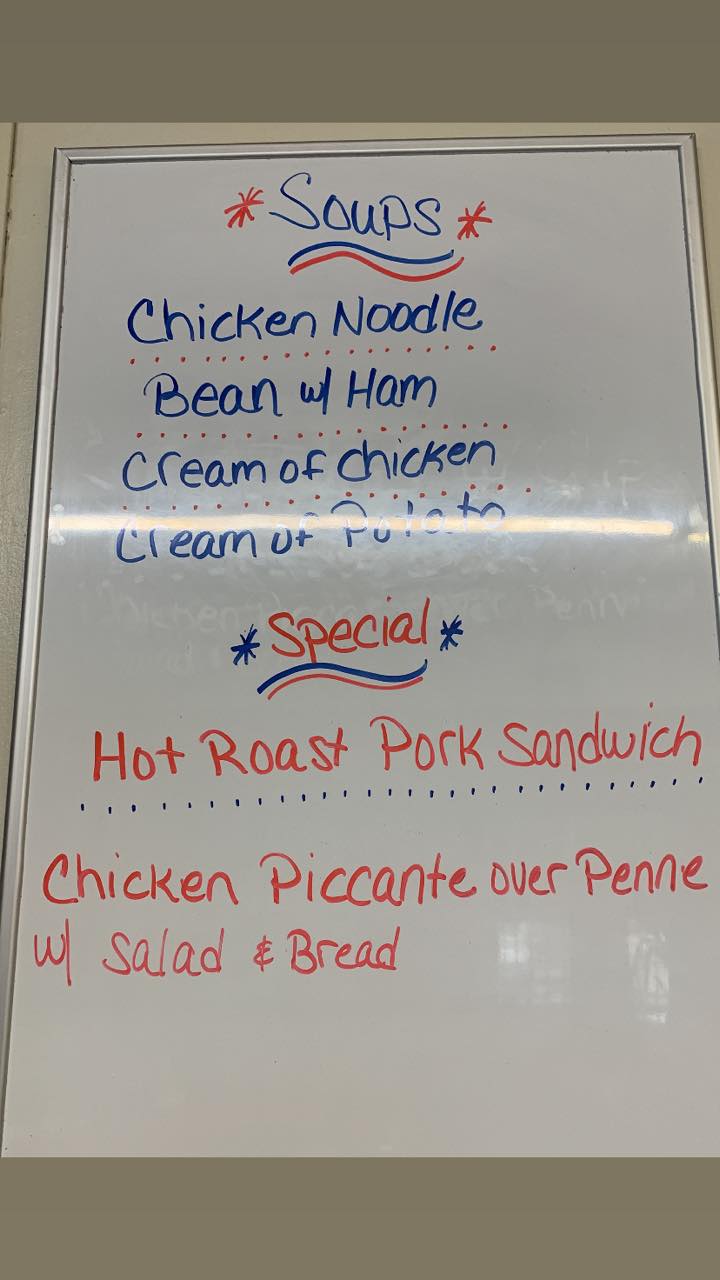 *Soups*
Chicken Noodle
Bean w/ Ham
Cream of Chicken
Cream of Potato
*Special*
Hot Roast Pork Sandwich
Chicken Piccante over Penne
w/ Salad & Bread